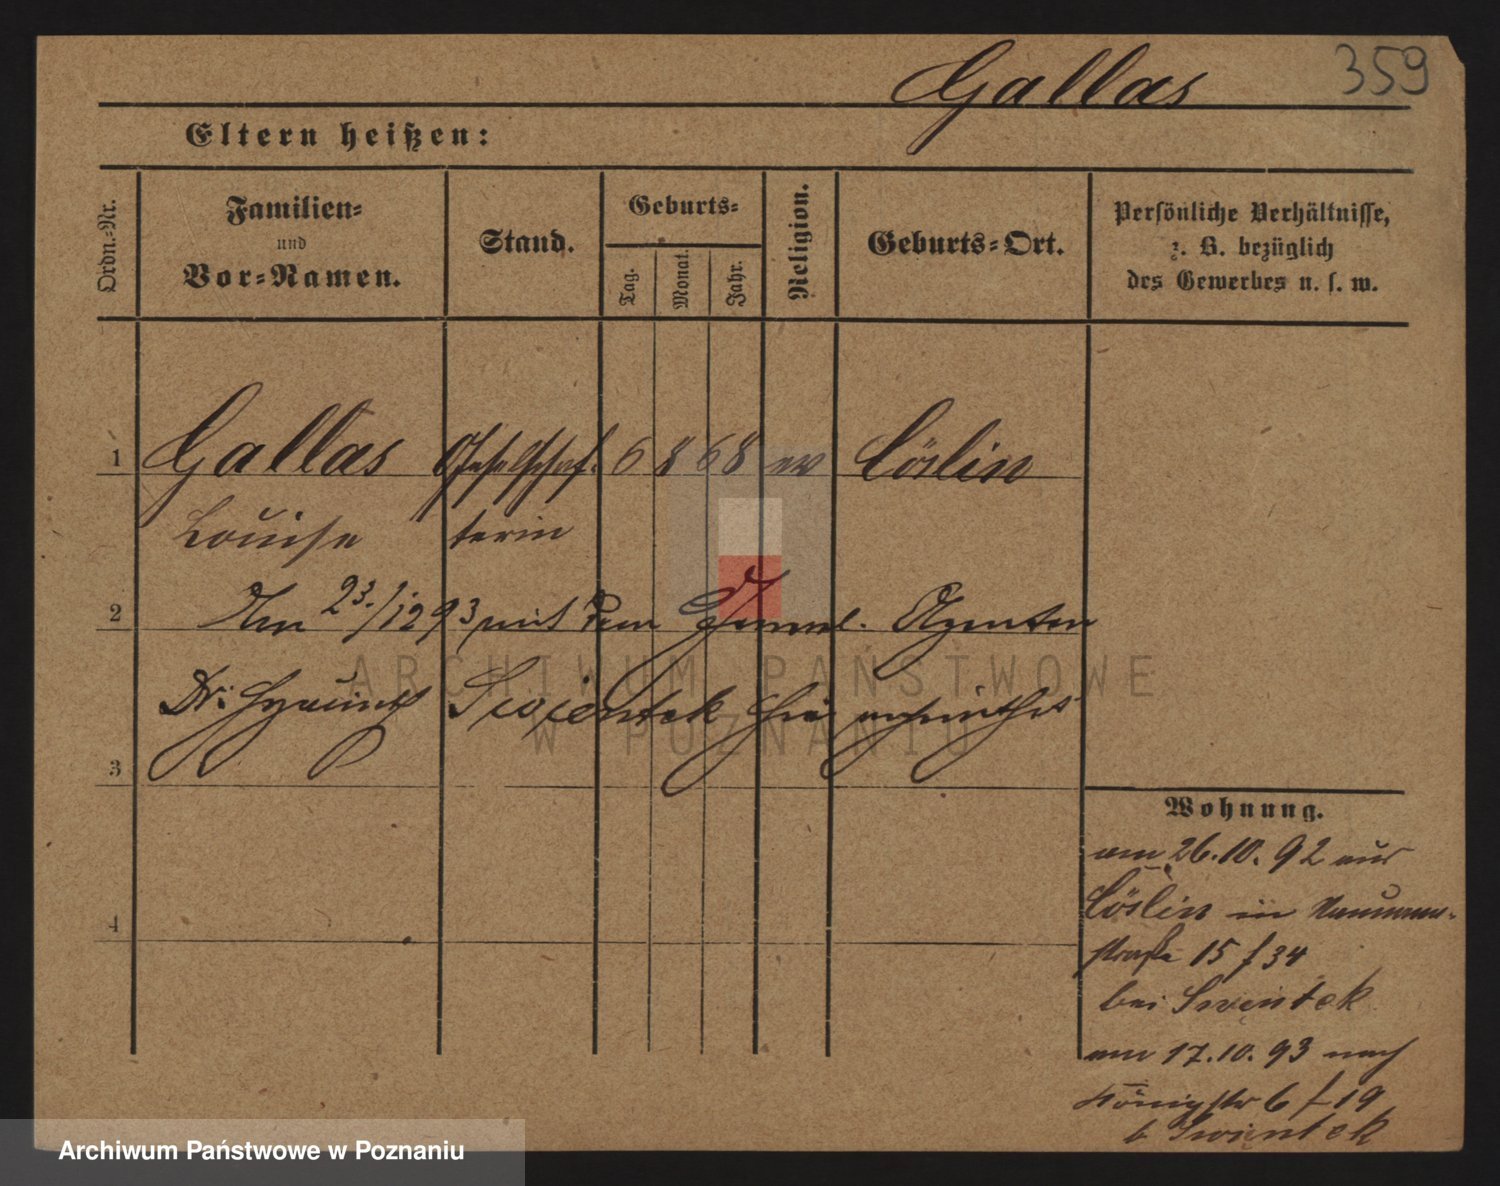 Gallas 359
Eltern heißen:
Ordn.-Nr.
Familien-
und
Vor-Namen.
Stand.
Geburts-
Tag.
Monat.
Jahr.
Religion.
Geburts-Ort.
Persönliche Verhältnisse,
z. B. bezüglich
des Gewerbes u. s. w.
1 Gallas Gesellschaf- 6 8 68 ev Cöslin
Louise terin
2 Am 23./12 93 mit dem General-Agenten
Dr. Hyacinth Swientek hier
3
ARCHIWUM PAŃSTWOWE
W POZNANIU
4
Wohnung.
am 26.10.92 aus
Cöslin in Naumann-
straße 15 f 34
bei Swientek
am 17.10.93 nach
Königstr 6 f 19
b Swientek
Archiwum Państwowe w Poznaniu